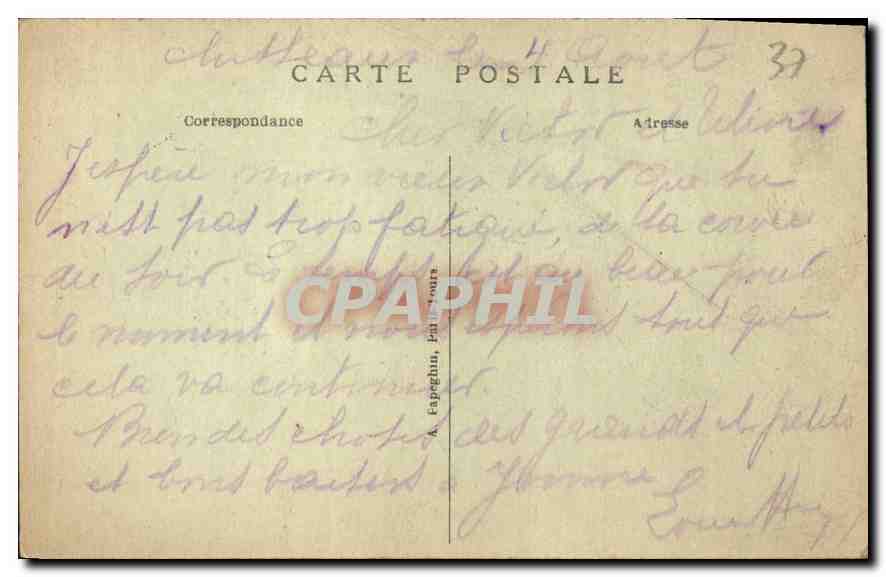 le 4 Août
37
CARTE POSTALE
Correspondance
Adresse
Cher Victor et
J'espère mon vieux Victor que tu
n'est pas trop fatigué, de la corvée
du soir. Le temps est au beau pour
le moment et nous espérons tout que
cela va continuer.
Bien des choses des grands et petits
et bons baisers à Yvonne
Louis
A. Papeghin, Paris-Tours.
CPAPHIL